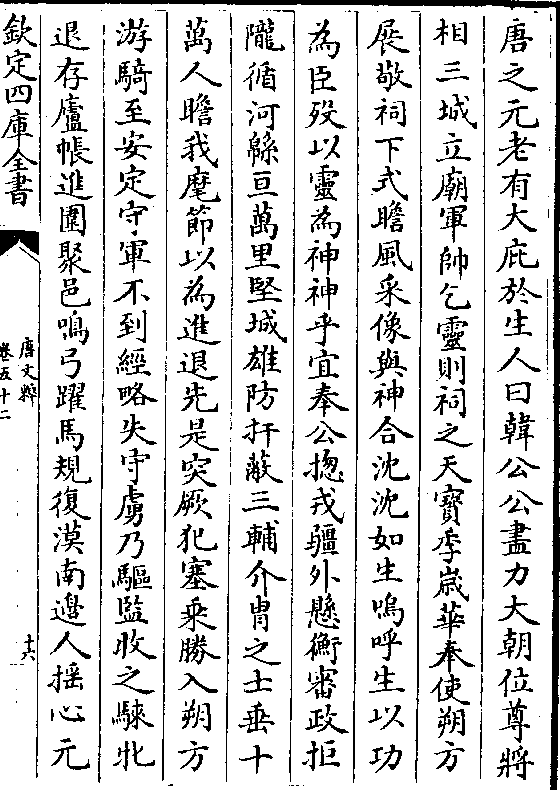 唐之元老有大庇於生人曰韓公公盡力大朝位尊將
相三城立廟軍帥乞靈則祠之天寳季嵗華奉使朔方
展敬祠下式瞻風采像與神合沈沈如生嗚呼生以功
為臣歿以靈為神神乎宜奉公揔戎疆外懸衡審政拒
隴循河緜亘萬里堅城雄防扞蔽三輔介胄之士垂十
萬人瞻我麾節以為進退先是突厥犯塞乗勝入朔方
游騎至安定守軍不到經略失守虜乃驅監牧之騋牝
退存廬帳進圍聚邑鳴弓躍馬規復漠南邉人揺心元
欽定四庫全書
唐文粹
卷五十二
十六